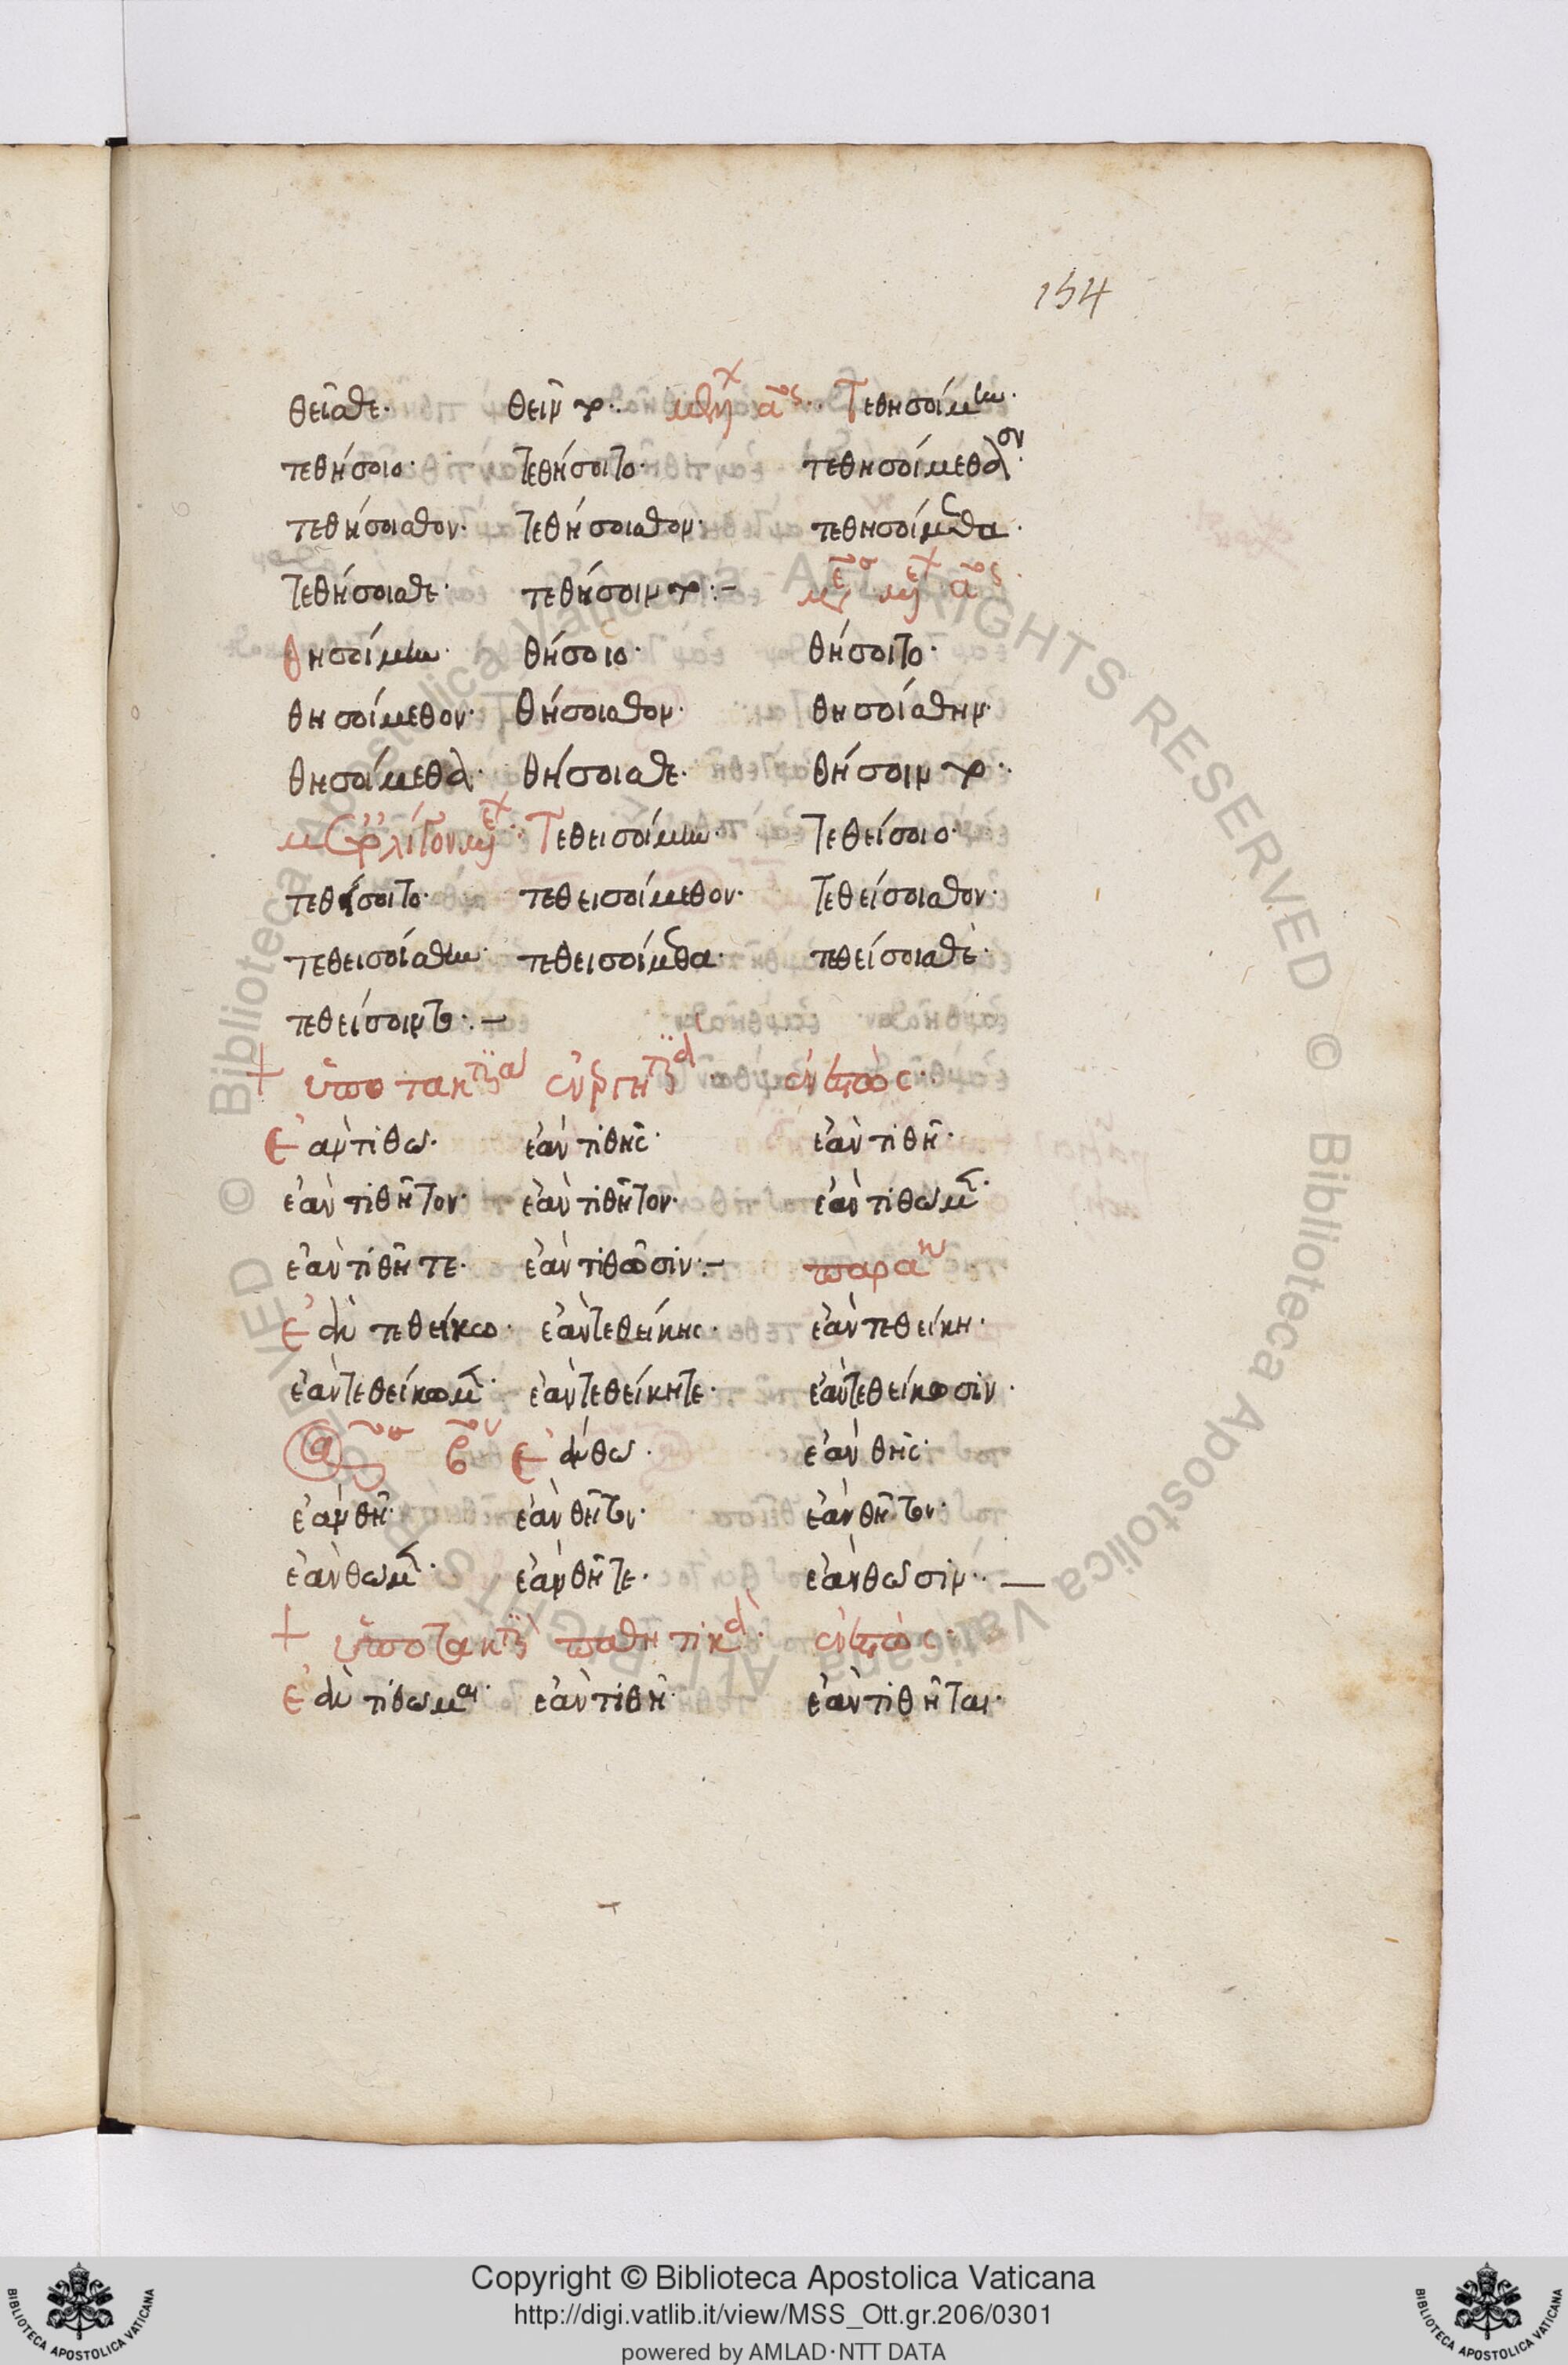 154
θεῖσθε· θεῖντο·· μέλλ α΄· Τεθησοίμην·
τεθήσοιο· τεθήσοιτο· τεθησοίμεθον·
τεθήσοισθον· τεθήσοισθον· τεθησοίμεθα·
τεθήσοισθε· τεθήσοιντο:–
θησοίμην· θήσοιο· θήσοιτο·
θησοίμεθον· θήσοισθον· θησοίσθην·
θησοίμεθα· θήσοισθε· θήσοιντο··
Τεθεισοίμην· τεθείσοιο·
τεθείσοιτο· τεθεισοίμεθον· τεθείσοισθον·
τεθεισοίσθην· τεθεισοίμεθα· τεθείσοισθε·
τεθείσοιντο:–
+ ὑποτακτικὰ ἐνεργητικά· ἐνεστώς··
Ἐὰν τιθῶ· ἐὰν τιθῆς· ἐὰν τιθῆ·
ἐὰν τιθῆτον· ἐὰν τιθῆτον· ἐὰν τιθῶμεν·
ἐὰν τιθῆτε· ἐὰν τιθῶσιν:– παρακ
Ἐὰν τεθείκω· ἐὰν τεθείκης· ἐὰν τεθείκη·
ἐὰν τεθείκωμεν· ἐὰν τεθείκητε· ἐὰν τεθείκωσιν·
ἀο β Ἐὰν θῶ· ἐὰν θῆς·
ἐὰν θῆ· ἐὰν θῆτον· ἐὰν θῆτον·
ἐὰν θῶμεν· ἐὰν θῆτε· ἐὰν θῶσιν·· —
+ ὑποτακτικὰ παθητικά· ἐνεστώς·
Ἐὰν τιθῶμαι· ἐὰν τιθῆ· ἐὰν τιθῆται·
Copyright © Biblioteca Apostolica Vaticana
http://digi.vatlib.it/view/MSS_Ott.gr.206/0301
powered by AMLAD·NTT DATA
BIBLIOTECA APOSTOLICA VATICANA
BIBLIOTECA APOSTOLICA VATICANA
© Biblioteca Apostolica Vaticana ALL RIGHTS RESERVED © Biblioteca Apostolica Vaticana ALL RIGHTS RESERVED